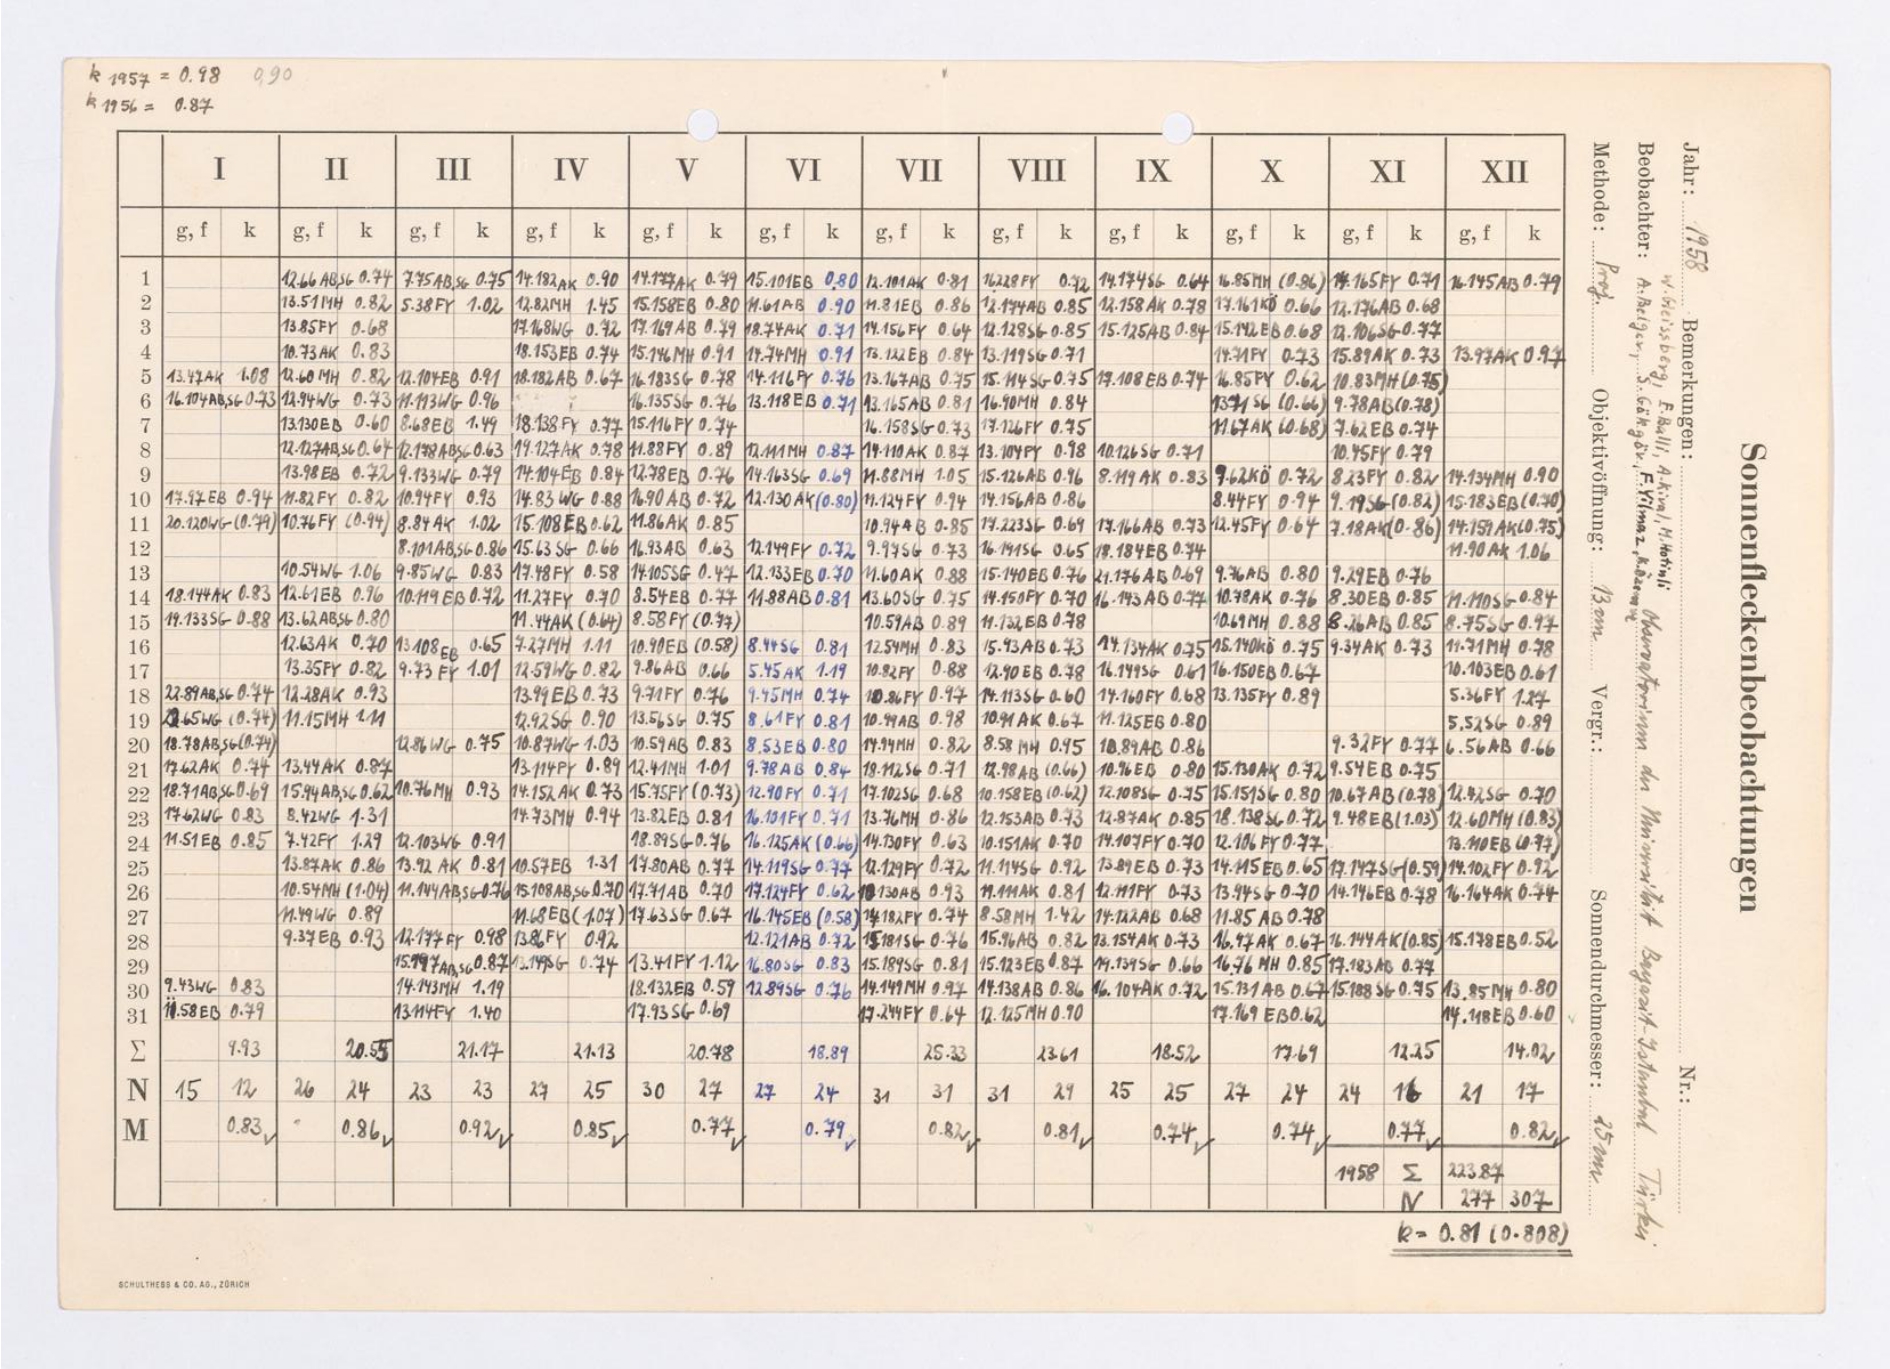 k 1957 = 0.98 0,90
k 1956 = 0.87
I II III IV V VI VII VIII IX X XI XII
g, f k g, f k g, f k g, f k g, f k g, f k g, f k g, f k g, f k g, f k g, f k g, f k
1 12.66AB,SG 0.74 7.75AB,SG 0.75 14.182AK 0.90 14.177AK 0.79 15.101EB 0.80 12.101AK 0.81 16.228FY 0.72 14.174SG 0.64 16.85MH (0.86) 14.165FY 0.71 16.145AB 0.79
2 13.51MH 0.82 5.38FY 1.02 12.82MH 1.45 15.158EB 0.80 11.61AB 0.90 11.81EB 0.86 12.174AB 0.85 12.158AK 0.78 17.161KÖ 0.66 12.176AB 0.68
3 13.85FY 0.68 17.168WG 0.72 17.169AB 0.79 18.74AK 0.71 14.156FY 0.64 12.128SG 0.85 15.125AB 0.84 15.142EB 0.68 12.106SG 0.77
4 10.73AK 0.83 18.153EB 0.74 15.146MH 0.91 14.74MH 0.91 13.122EB 0.84 13.119SG 0.71 14.71FY 0.73 15.89AK 0.73 13.97AK 0.97
5 13.47AK 1.08 12.60MH 0.82 12.104EB 0.91 18.182AB 0.67 16.183SG 0.78 14.116FY 0.76 13.167AB 0.75 15.114SG 0.75 17.108EB 0.74 16.85FY 0.62 10.83MH (0.75)
6 16.104AB,SG 0.73 12.94WG 0.73 11.113WG 0.96 16.135SG 0.76 13.118EB 0.71 13.165AB 0.81 16.90MH 0.84 13.71SG (0.66) 9.78AB (0.78)
7 13.130EB 0.60 8.68EB 1.49 18.138FY 0.77 15.116FY 0.74 16.158SG 0.73 17.126FY 0.75 11.67AK (0.68) 7.62EB 0.74
8 12.127AB,SG 0.64 12.178AB,SG 0.63 19.127AK 0.78 11.88FY 0.89 12.111MH 0.87 14.110AK 0.87 13.104FY 0.98 10.126SG 0.71 10.45FY 0.79
9 13.98EB 0.72 9.133WG 0.79 14.104EB 0.84 12.78EB 0.76 14.163SG 0.69 11.88MH 1.05 15.126AB 0.96 8.119AK 0.83 9.62KÖ 0.72 8.23FY 0.82 14.134MH 0.90
10 17.97EB 0.94 11.82FY 0.82 10.94FY 0.93 14.83WG 0.88 16.90AB 0.72 12.130AK (0.80) 11.124FY 0.94 14.156AB 0.86 8.44FY 0.94 9.19SG (0.82) 15.183EB (0.70)
11 20.120WG (0.79) 10.76FY (0.94) 8.84AK 1.02 15.108EB 0.62 11.86AK 0.85 10.94AB 0.85 17.223SG 0.69 17.166AB 0.73 12.45FY 0.64 7.18AK (0.86) 14.159AK (0.75)
12 8.101AB,SG 0.86 15.63SG 0.66 16.93AB 0.63 12.149FY 0.72 9.97SG 0.73 16.191SG 0.65 18.184EB 0.74 11.90AK 1.06
13 10.54WG 1.06 9.85WG 0.83 17.48FY 0.58 14.105SG 0.47 12.133EB 0.70 11.60AK 0.88 15.140EB 0.76 21.176AB 0.69 9.76AB 0.80 9.29EB 0.76
14 18.144AK 0.83 12.61EB 0.96 10.119EB 0.72 11.27FY 0.70 8.54EB 0.77 11.88AB 0.81 13.60SG 0.75 14.150FY 0.70 16.143AB 0.77 10.78AK 0.76 8.30EB 0.85 11.110SG 0.84
15 19.133SG 0.88 13.62AB,SG 0.80 11.44AK (0.64) 8.58FY (0.77) 10.59AB 0.89 11.132EB 0.78 10.69MH 0.88 8.26AB 0.85 8.75SG 0.97
16 12.63AK 0.70 13.108EB 0.65 7.27MH 1.11 10.90EB (0.58) 8.44SG 0.81 12.54MH 0.83 15.93AB 0.73 14.134AK 0.75 15.140KÖ 0.75 9.34AK 0.73 11.71MH 0.78
17 13.35FY 0.82 9.73FY 1.01 12.59WG 0.82 9.86AB 0.66 5.45AK 1.19 10.82FY 0.88 12.90EB 0.78 16.149SG 0.61 16.150EB 0.67 10.103EB 0.61
18 22.89AB,SG 0.74 12.28AK 0.93 13.99EB 0.73 9.71FY 0.76 9.45MH 0.74 10.86FY 0.97 14.113SG 0.60 14.160FY 0.68 13.135FY 0.89 5.36FY 1.27
19 22.65WG (0.74) 11.15MH 1.11 12.92SG 0.90 13.56SG 0.75 8.61FY 0.81 10.99AB 0.98 10.91AK 0.67 11.125EB 0.80 5.52SG 0.89
20 18.78AB,SG (0.74) 12.86WG 0.75 10.87WG 1.03 10.59AB 0.83 8.53EB 0.80 14.94MH 0.82 8.58MH 0.95 10.89AB 0.86 9.32FY 0.77 6.56AB 0.66
21 17.62AK 0.74 13.44AK 0.87 13.114FY 0.89 12.41MH 1.01 9.78AB 0.84 18.112SG 0.71 12.98AB (0.66) 10.96EB 0.80 15.130AK 0.72 9.54EB 0.75
22 18.71AB,SG 0.69 15.94AB,SG 0.62 10.76MH 0.93 14.152AK 0.73 15.75FY (0.73) 12.90FY 0.71 17.102SG 0.68 10.158EB (0.62) 12.108SG 0.75 15.151SG 0.80 10.67AB (0.78) 12.42SG 0.70
23 17.62WG 0.83 8.42WG 1.31 14.73MH 0.94 13.82EB 0.81 16.101FY 0.71 13.76MH 0.86 12.153AB 0.73 12.87AK 0.85 18.138SG 0.72 9.48EB (1.03) 12.60MH (0.83)
24 11.51EB 0.85 7.42FY 1.29 12.103WG 0.91 18.89SG 0.76 16.125AK (0.66) 14.130FY 0.63 10.151AK 0.70 14.107FY 0.70 12.106FY 0.77 13.110EB (0.97)
25 13.87AK 0.86 13.92AK 0.81 10.57EB 1.31 17.80AB 0.77 14.119SG 0.77 12.129FY 0.72 11.114SG 0.92 13.89EB 0.73 14.115EB 0.65 17.147SG (0.59) 14.102FY 0.92
26 10.54MH (1.04) 11.144AB,SG 0.76 15.108AB,SG 0.70 17.71AB 0.70 17.124FY 0.62 10.130AB 0.93 11.111AK 0.81 12.111FY 0.73 13.94SG 0.70 14.146EB 0.78 16.164AK 0.74
27 11.49WG 0.89 11.68EB (1.07) 17.63SG 0.67 16.145EB (0.58) 14.182FY 0.74 8.58MH 1.42 14.122AB 0.68 11.85AB 0.78
28 9.37EB 0.93 12.177FY 0.98 13.86FY 0.92 12.121AB 0.72 15.181SG 0.76 15.96AB 0.82 13.154AK 0.73 16.97AK 0.67 16.144AK (0.85) 15.178EB 0.52
29 15.197AB,SG 0.87 13.149SG 0.74 13.41FY 1.12 16.80SG 0.83 15.189SG 0.81 15.123EB 0.87 19.139SG 0.66 16.76MH 0.85 17.183AB 0.77
30 9.43WG 0.83 14.143MH 1.19 18.132EB 0.59 12.89SG 0.76 14.149MH 0.97 14.138AB 0.86 16.104AK 0.72 15.131AB 0.67 15.188SG 0.75 13.85MH 0.80
31 11.58EB 0.79 13.114FY 1.40 17.93SG 0.69 17.244FY 0.64 12.125MH 0.90 17.169EB 0.62 14.118EB 0.60
Σ 9.93 20.55 21.17 21.13 20.78 18.89 25.33 23.61 18.52 17.69 12.25 14.02
N 15 12 26 24 23 23 27 25 30 27 27 24 31 31 31 29 25 25 27 24 24 16 21 17
M 0.83 0.86 0.92 0.85 0.77 0.79 0.82 0.81 0.74 0.74 0.77 0.82
1958 Σ 223.87
N 277 307
k = 0.81 (0.808)
SCHULTHESS & CO. AG., ZÜRICH
Sonnenfleckenbeobachtungen
Jahr: 1958 Bemerkungen: Nr.:
W. Gleissberg, E. Balli, A. Kiral, M. Hotinli
Beobachter: A. Belger, S. Gökgör, F. Yilmaz, Observatorium der Universität Bayazit-Istanbul Türkei
Methode: Proj. Objektivöffnung: 13 cm Vergr.: Sonnendurchmesser: 25 cm